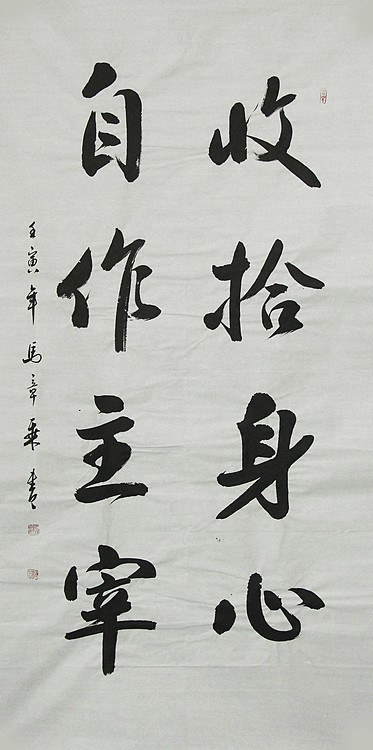 收拾身心
自作主宰
壬寅年馬章乘書